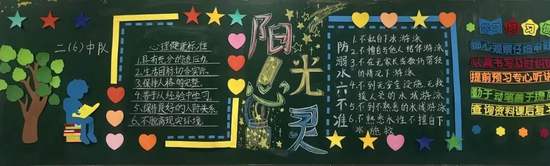 二(6)中队
心理健康标准
1.具有充分的适应力
2.生活目标切合实际
3.保持人格的完整
4.善于从经验中学习
5.保持良好的人际关系
6.不脱离现实环境
阳光心灵
防溺水六不准
1.不私自下水游泳
2.不擅自与他人结伴游泳
3.不在无家长或教师带领的情况下游泳
4.不到无安全设施、无救援人员的水域游泳
5.不到不熟悉的水域游泳
6.不熟悉水性不擅自下水施救
学习
细心观察仔细
认真书写及时
提前预习专心听讲
勤于动笔善于
查询资料课后复